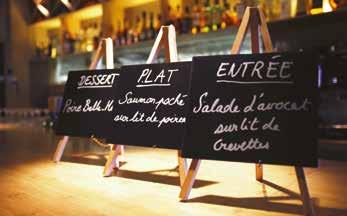 DESSERT
Poire Belle-H
PLAT
Saumon poché
sur lit de poires
ENTRÉE
Salade d'avocat
sur lit de
Crevettes